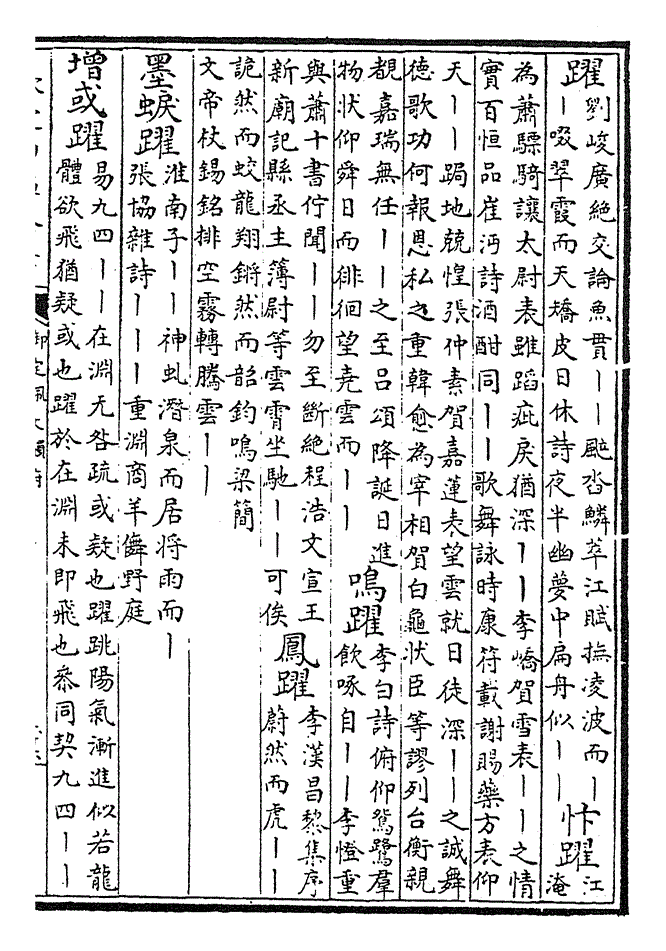 躍劉峻廣絶交論魚貫丨丨颮沓鱗萃江賦撫凌波而丨
丨啜翠霞而夭矯皮日休詩夜半幽夢中扁舟似丨丨
忭躍江
淹
為蕭驃騎讓太尉表雖蹈疵戾猶深丨丨李嶠賀雪表丨丨之情
實百恒品崔沔詩酒酣同丨丨歌舞詠時康符載謝賜藥方表仰
天丨丨跼地兢惶張仲素賀嘉蓮表望雲就日徒深丨丨之誠舞
德歌功何報恩私之重韓愈為宰相賀白龜狀臣等謬列台衡親
覩嘉瑞無任丨丨之至吕頌降誕日進
物狀仰舜日而徘徊望堯雲而丨丨
鳴躍李白詩俯仰鴛鷺羣
飲啄自丨丨李憕重
與蕭十書佇聞丨丨勿至斷絶程浩文宣王
新廟記縣丞主簿尉等雲霄坐馳丨丨可俟
鳳躍李漢昌黎集序
蔚然而虎丨丨
詭然而蛟龍翔鏘然而韶鈞鳴梁簡
文帝杖錫銘排空霧轉騰雲丨丨
墨蜧躍淮南子丨丨神虬潛泉而居將雨而丨
張協雜詩丨丨丨重淵商羊儛野庭
增或躍易九四丨丨在淵无咎疏或疑也躍跳陽氣漸進似若龍
體欲飛猶疑或也躍於在淵未即飛也叅同契九四丨丨